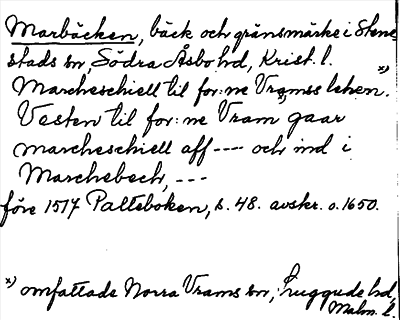 Marbäcken, bäck och gränsmärke i Stene-
stads sn, Södra Åsbo hd, Krist. l.
Marcheschiell til for:ne Vramss lehen. x)
Vesten til for:ne Vram gaar
marcheschiell aff ---- och ind i
Marchebech, ---
före 1517 Palteboken, s. 48. avskr. o. 1650.
x) omfattade Norra Vrams sn, Luggude hd,
Malm. l.